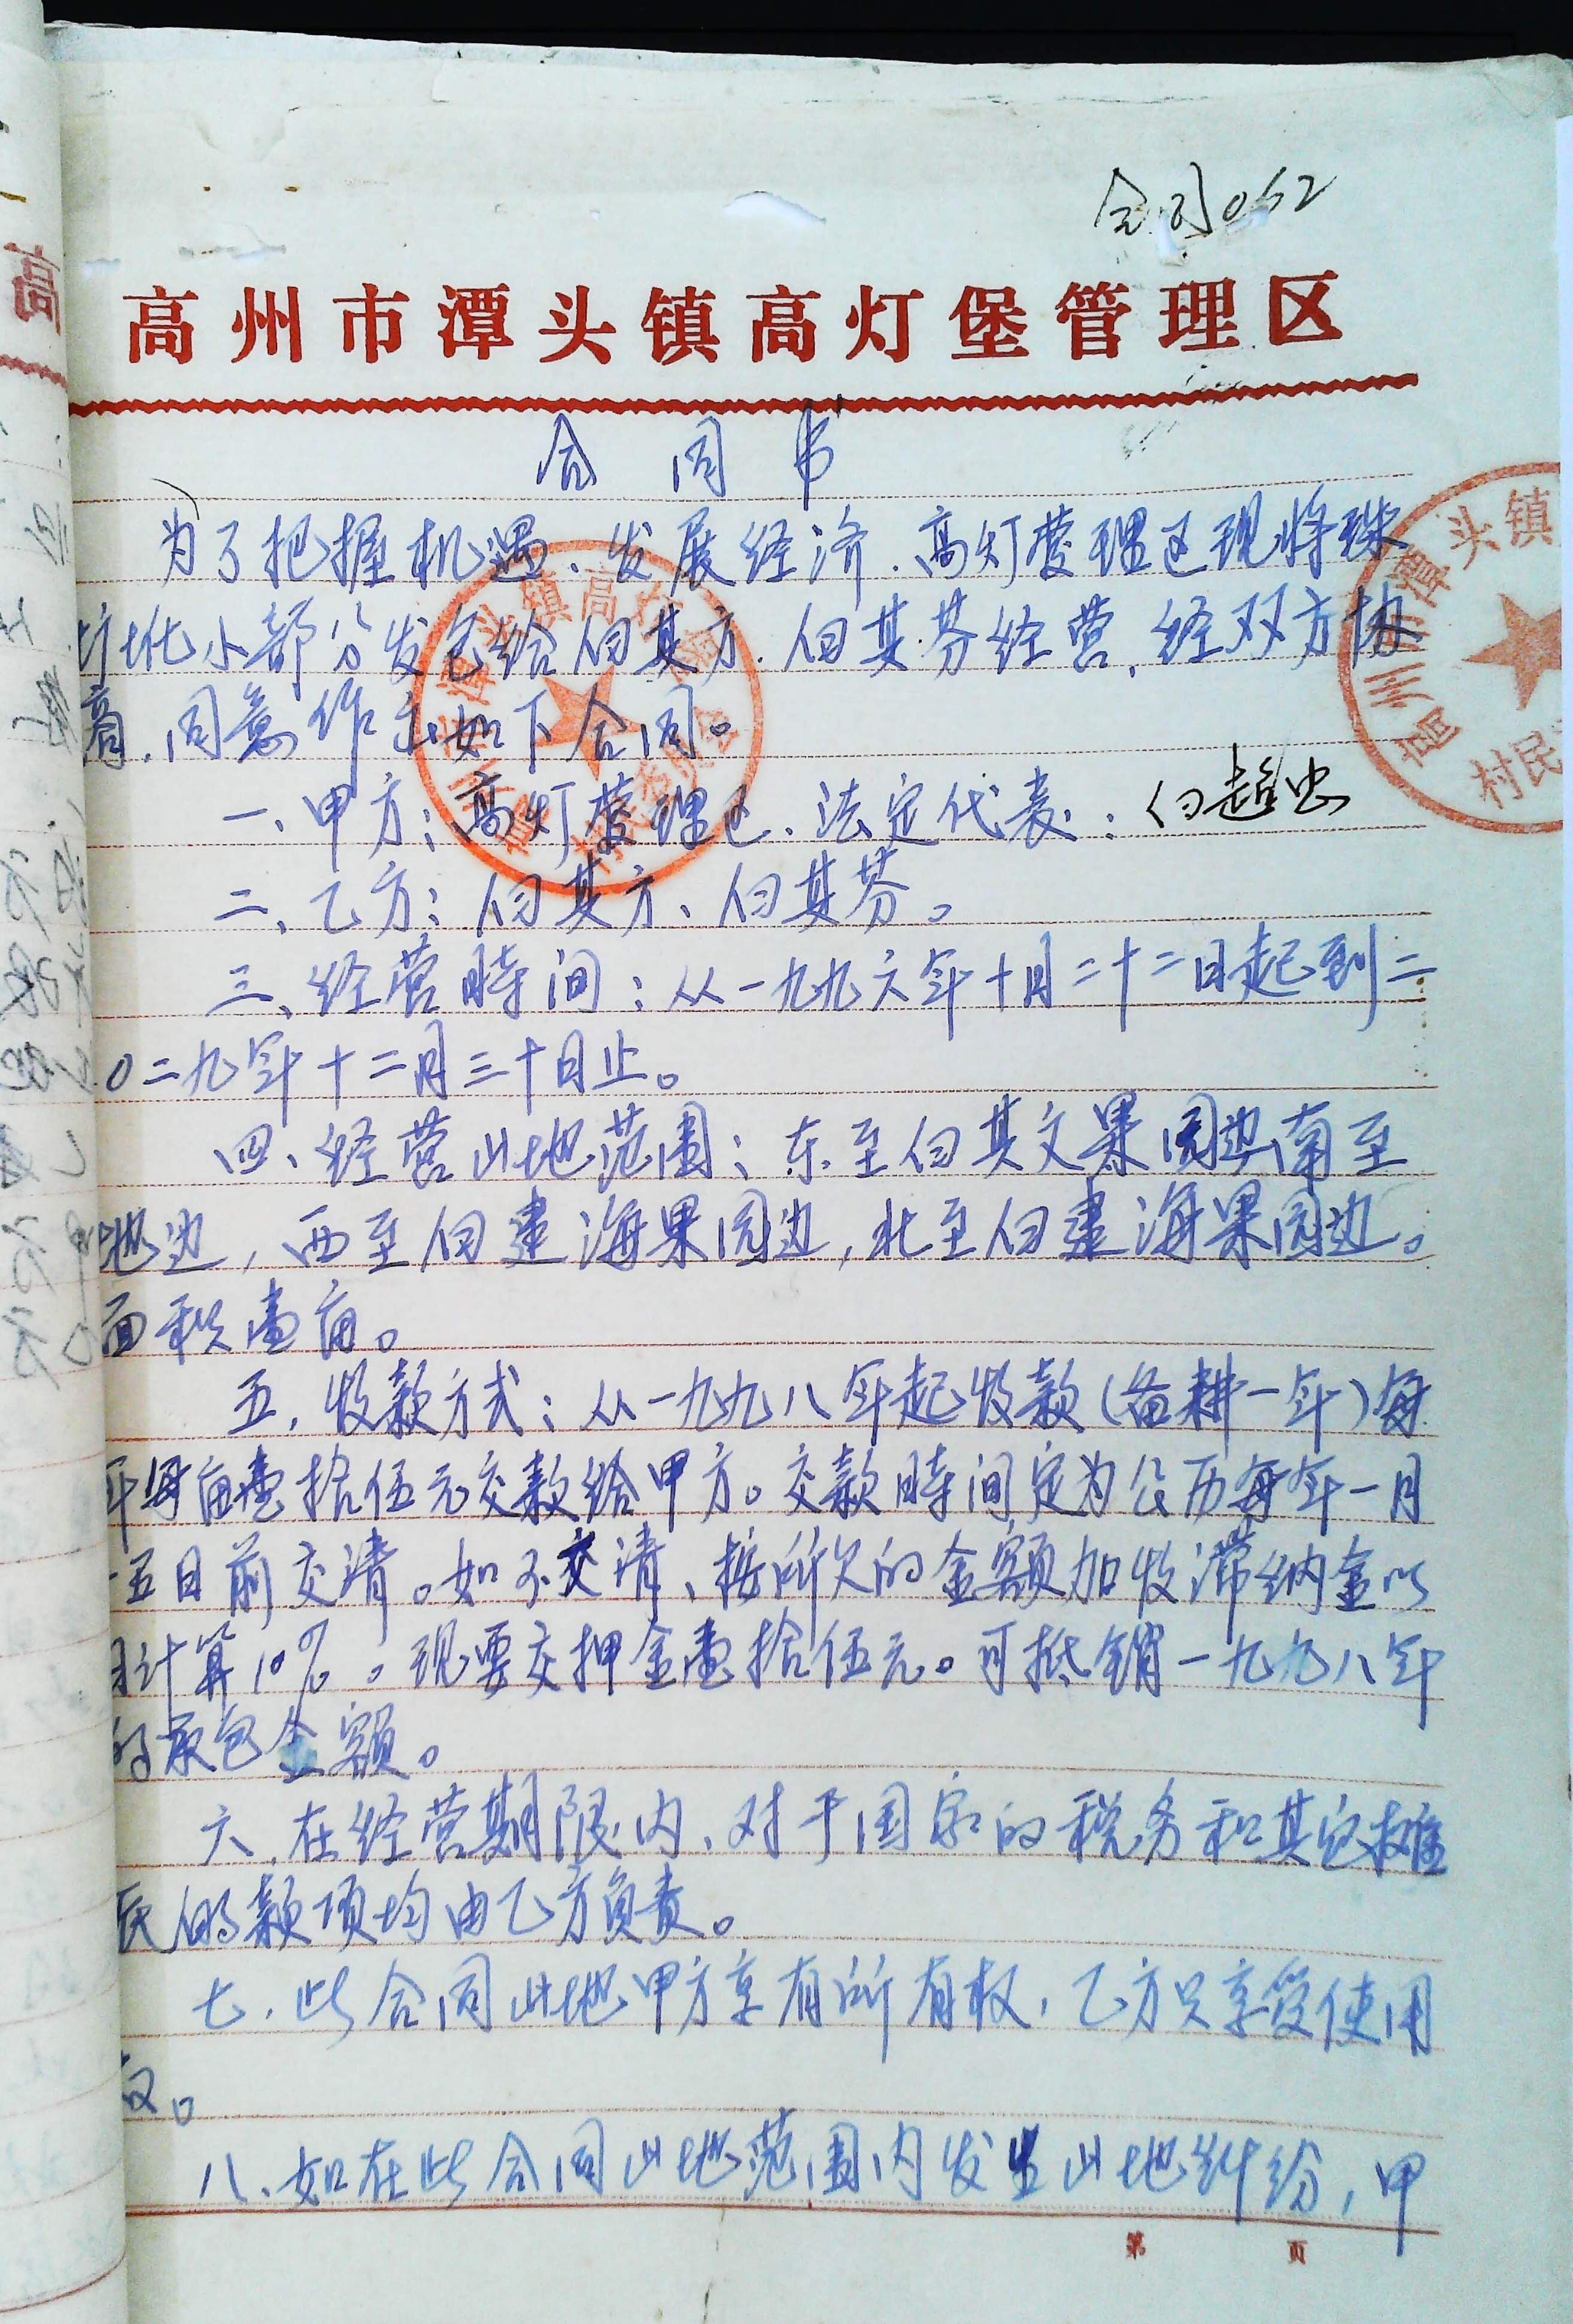 合同062
高州市潭头镇高灯堡管理区
合同书
为了把握机遇、发展经济、高灯管理区现将珠
小部分发包给伯其方、伯其芬经营,经双方协
商,同意作立如下合同。
一、甲方:高灯管理区、法定代表:
二、乙方:伯其方、伯其芬。
三、经营时间:从一九九六年十月二十二日起到二
0二九年十二月三十日止。
四、经营山地范围:东至伯其文果园边南至
地边,西至伯建海果园边,北至伯建海果园边。
面积壹亩。
五、收款方式:从一九九八年起收款(备耕一年)每
年每亩壹拾伍元交款给甲方。交款时间定为公历每年一月
十五日前交清。如不交清、按所欠的金额加收滞纳金以
月计算10%。现要交押金壹拾伍元。可抵销一九九八年
的承包金额。
六、在经营期限内、对于国家的税务和其它摊
的款项均由乙方负责。
七、此合同山地甲方享有所有权,乙方只享受使用
权。
八、如在此合同山地范围内发生山地纠纷,甲
第 页
潭头镇
村民